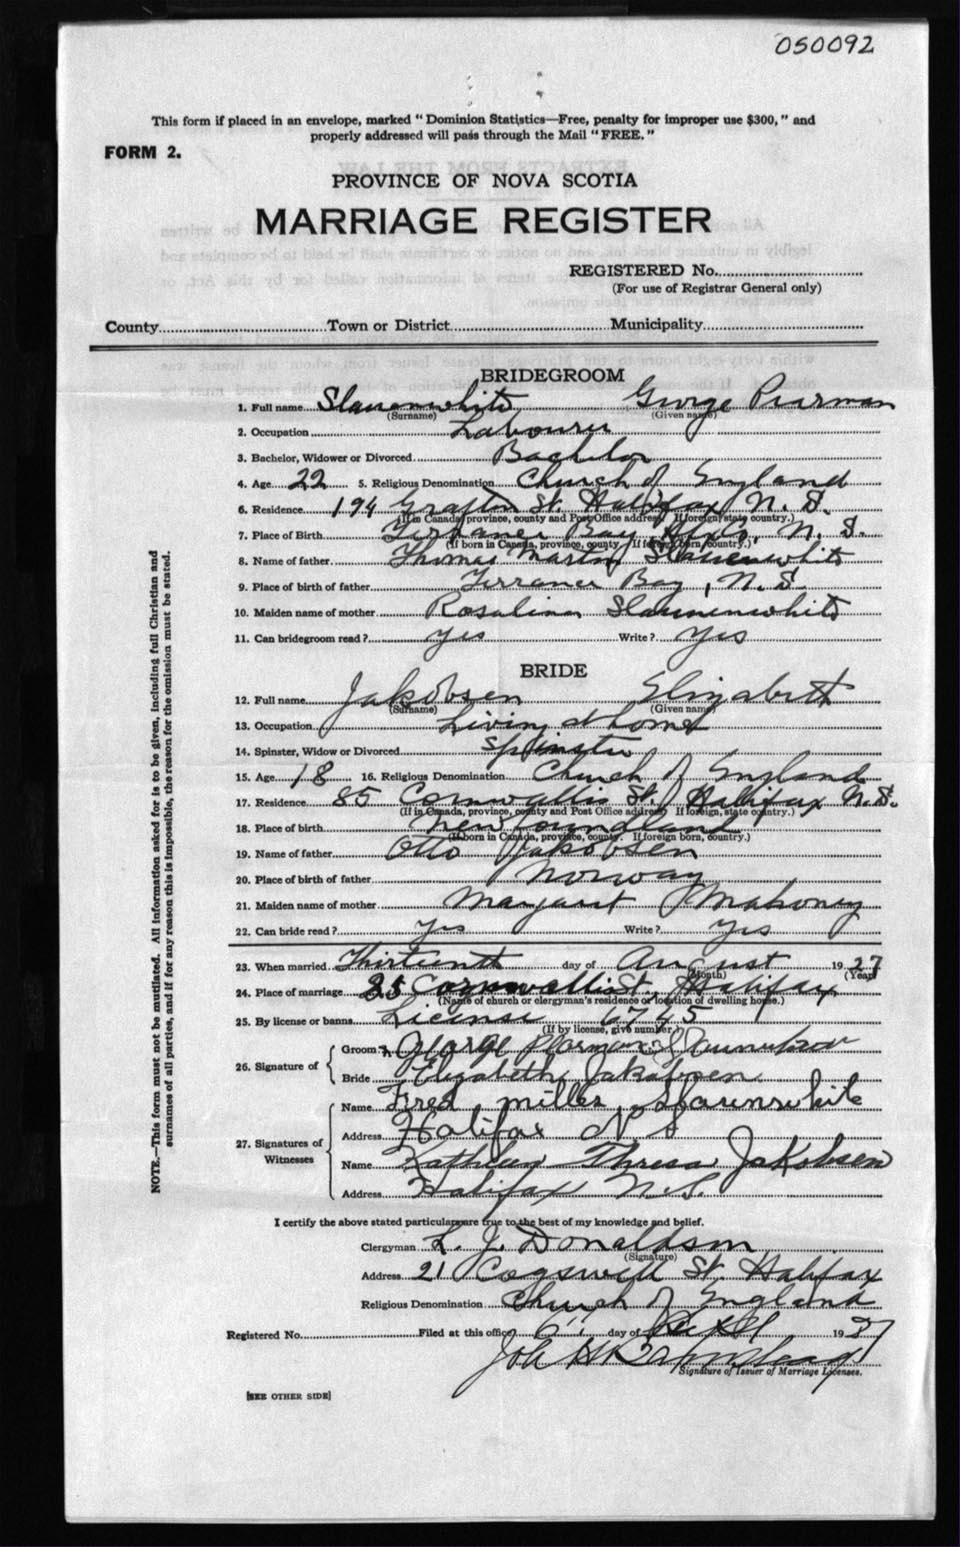 050092
This form if placed in an envelope, marked "Dominion Statistics—Free, penalty for improper use $300," and
properly addressed will pass through the Mail "FREE."
FORM 2.
PROVINCE OF NOVA SCOTIA
MARRIAGE REGISTER
REGISTERED No.
(For use of Registrar General only)
County Town or District Municipality
BRIDEGROOM
1. Full name Slauenwhite George Pearman
(Surname) (Given name)
2. Occupation Labourer
3. Bachelor, Widower or Divorced Bachelor
4. Age 22 5. Religious Denomination Church of England
6. Residence 194 Grafton St. Halifax N. S.
(If in Canada, province, county and Post Office address. If foreign, state country.)
7. Place of Birth Terrance Bay Hfx Co. N. S.
(If born in Canada, province, county. If foreign born, country.)
8. Name of father Thomas Martin Slauenwhite
9. Place of birth of father Terrance Bay, N. S.
10. Maiden name of mother Rosalina Slauenwhite
11. Can bridegroom read? Yes Write? Yes
BRIDE
12. Full name Jakobsen Elizabeth
(Surname) (Given name)
13. Occupation Living at home
14. Spinster, Widow or Divorced Spinster
15. Age 18 16. Religious Denomination Church of England
17. Residence 85 Cornwallis St. Halifax N.S.
(If in Canada, province, county and Post Office address. If foreign, state country.)
18. Place of birth Newfoundland
(If born in Canada, province, county. If foreign born, country.)
19. Name of father Otto Jakobsen
20. Place of birth of father Norway
21. Maiden name of mother Margaret Mahoney
22. Can bride read? Yes Write? Yes
23. When married Thirteenth day of August 1927
(Month) (Year)
24. Place of marriage 85 Cornwallis St. Halifax
(Name of church or clergyman's residence or location of dwelling house.)
25. By license or banns License 6745
(If by license, give number)
26. Signature of
Groom George Pearman
Bride Elizabeth Jakobsen
27. Signatures of Witnesses
Name Fred miller Slaunwhite
Address Halifax N S
Name Kathleen Theresa Jakobsen
Address Halifax N.S.
I certify the above stated particulars are true to the best of my knowledge and belief.
Clergyman L. J. Donaldson
(Signature)
Address 21 Cogswell St. Halifax
Religious Denomination Church of England
Registered No. Filed at this office 6 day of 1927
Signature of Issuer of Marriage Licenses.
[SEE OTHER SIDE]
NOTE.—This form must not be mutilated. All information asked for is to be given, including full Christian and
surnames of all parties, and if for any reason this is impossible, the reason for the omission must be stated.